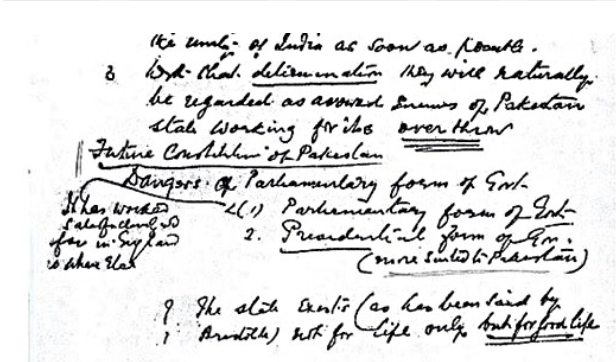 the unity of India as soon as possible.
3 With that determination they will naturally
be regarded as avowed enemies of Pakistan
state working for its over throw
Future Constitution of Pakistan
Dangers of Parliamentary form of Govt-
(1) Parliamentary form of Govt-
2. Presidential form of Gov.
(more suited to Pakistan)
It has worked
satisfactorily so
far in England
no where else
The state exists (as has been said by
Aristotle) not for life only but for good life